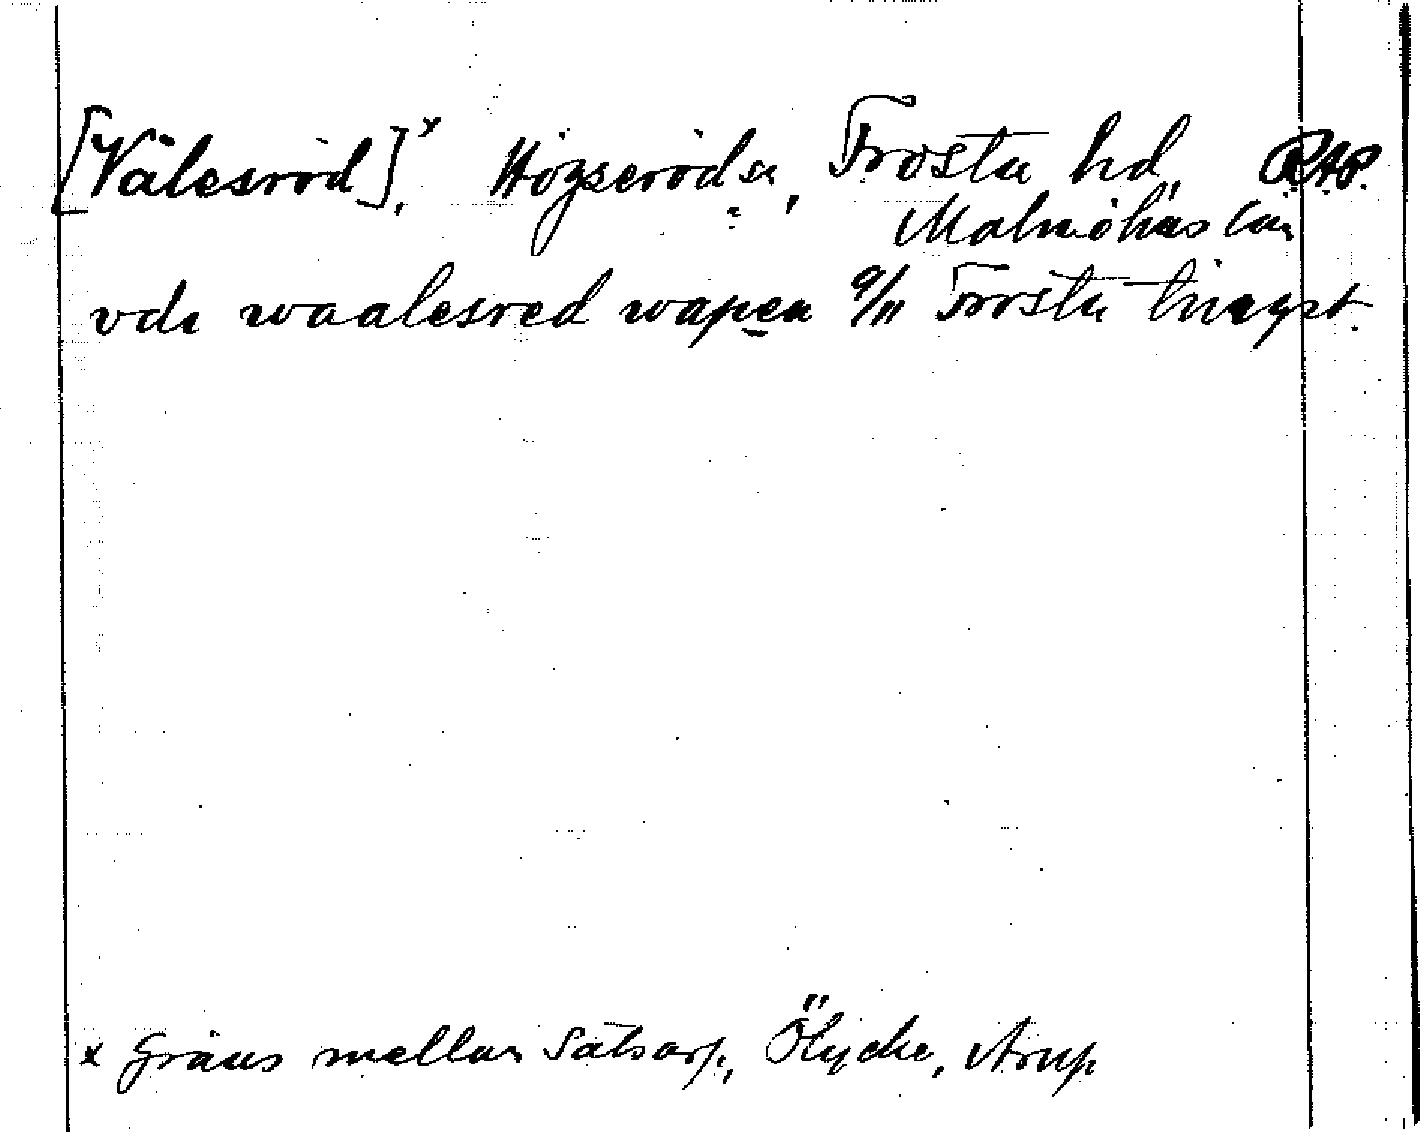 [Välesröd],ˣ Högseröds sn, Frosta hd, RAP.
Malmöhus län
vdi waalesred wapen 9/11 Frosta tingst.
x Gräns mellan Sätsarp, Ölycke, Arup